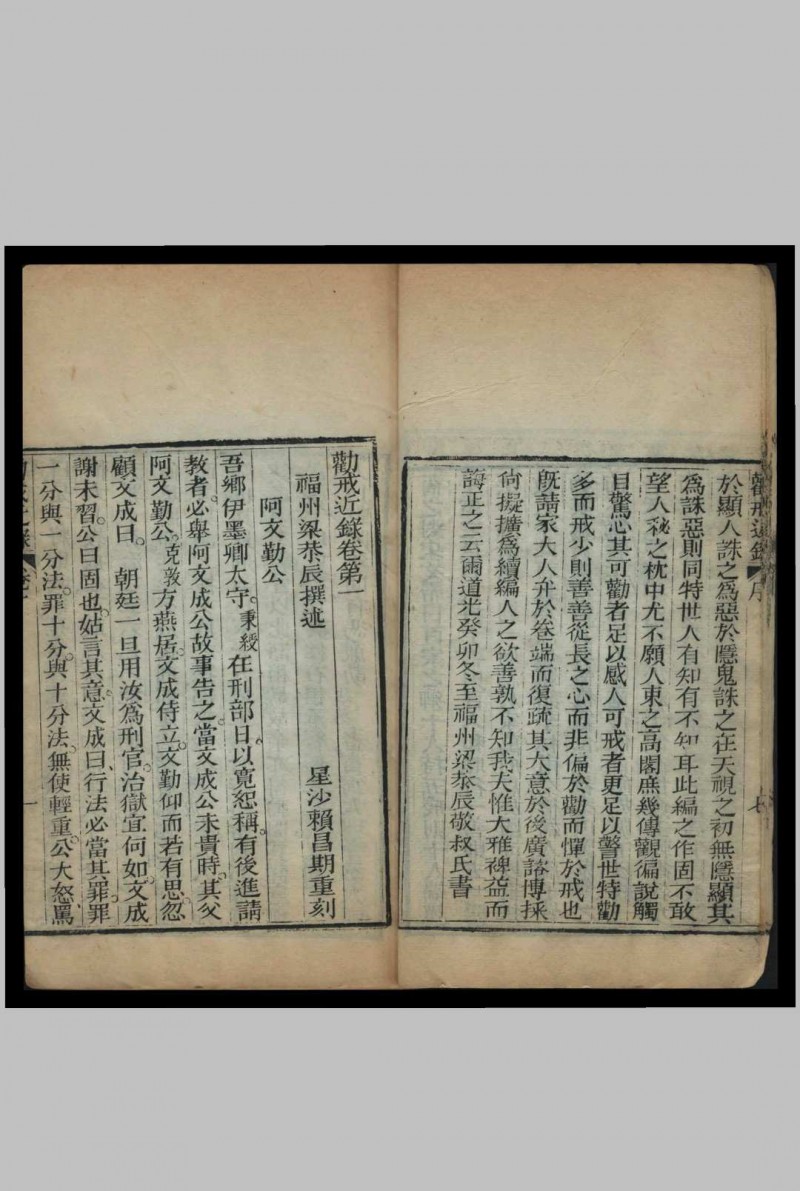 勸戒近錄 序 七
於顯人誅之爲惡於隱鬼誅之在天視之初無隱顯其
爲誅惡則同特世人有知有不知耳此編之作固不敢
望人祕之枕中尤不願人束之高閣庶幾傳觀徧說觸
目驚心其可勸者足以感人可戒者更足以警世特勸
多而戒少則善善從長之心而非偏於勸而憚於戒也
既請家大人弁於卷端而復疏其大意於後廣諮博採
尚擬擴爲續編人之欲善孰不知我夫惟大雅裨益而
誨正之云爾道光癸卯冬至福州梁恭辰敬叔氏書
勸戒近錄卷第一
福州梁恭辰撰述 星沙賴昌期重刻
阿文勤公
吾鄉伊墨卿太守。秉綬在刑部日。以寬恕稱。有後進請
教者。必舉阿文成公故事告之。當文成公未貴時。其父
阿文勤公。克敦方燕居。文成侍立。文勤仰而若有思。忽
顧文成曰。 朝廷一旦用汝爲刑官。治獄宜何如。文成
謝未習。公曰固也。姑言其意。文成曰、行法必當其罪。罪
一分與一分法。罪十分。與十分法。無使輕重。公大怒罵
一